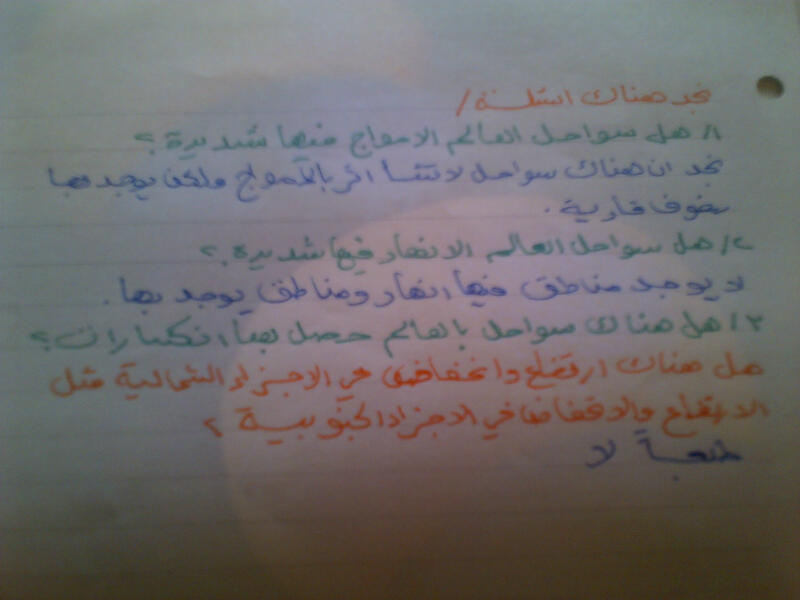 نجد هناك اسئلة /
١/ هل سواحل العالم الامواج فيها شديدة ؟
نجد ان هناك سواحل لا تتأثر بالامواج ولكن يوجد بها
قارية .
٢/ هل سواحل العالم الانهار فيها شديدة ؟
لا يوجد مناطق فيها انهار ومناطق يوجد بها .
٣/ هل هناك سواحل بالعالم حصل بها انكسارات ؟
هل هناك ارتفاع وانخفاض في الاجزاء الشمالية مثل
الارتفاع والانخفاض في الاجزاء الجنوبية ؟
طبعاً لا